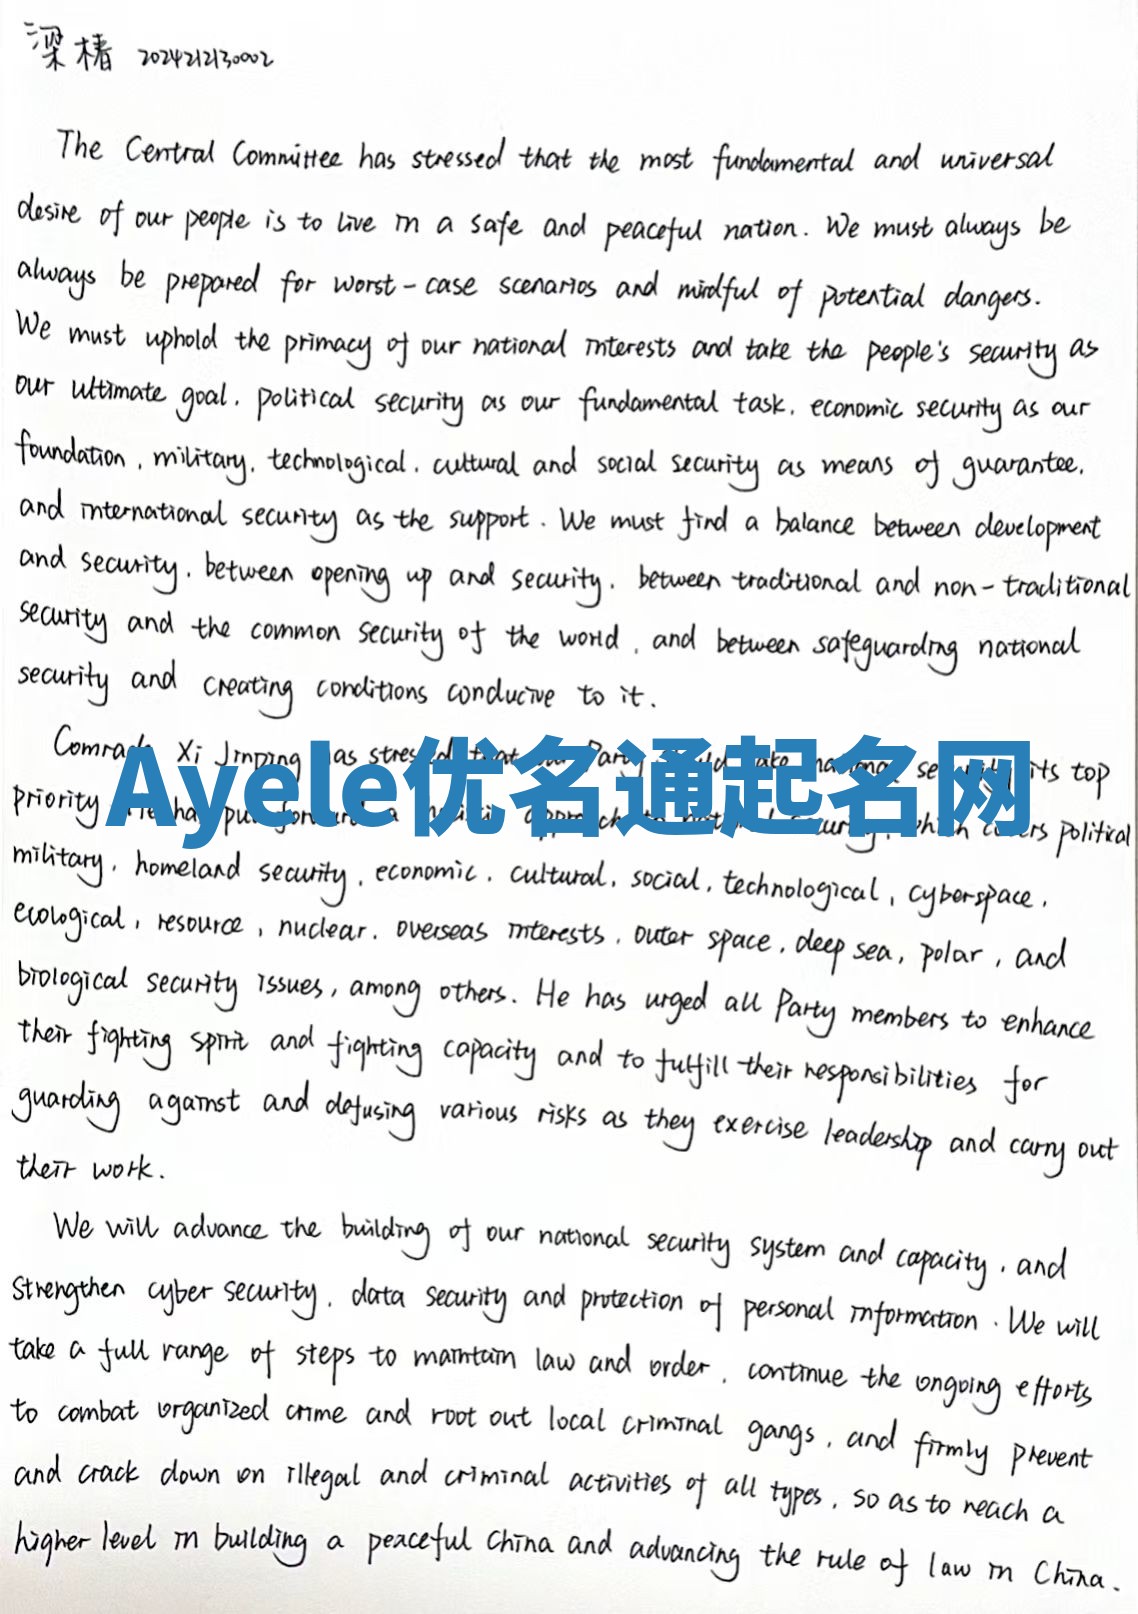 梁椿 2024212130002
The Central Committee has stressed that the most fundamental and universal
desire of our people is to live in a safe and peaceful nation. We must always be
always be prepared for worst-case scenarios and mindful of potential dangers.
We must uphold the primacy of our national interests and take the people's security as
our ultimate goal, political security as our fundamental task, economic security as our
foundation, military, technological, cultural and social security as means of guarantee,
and international security as the support. We must find a balance between development
and security, between opening up and security, between traditional and non-traditional
security and the common security of the world, and between safeguarding national
security and creating conditions conducive to it.
Comrade Xi Jinping has stressed that Party national security its top
Ayele优名通起名网
priority approach security, which covers political
military, homeland security, economic, cultural, social, technological, cyberspace,
ecological, resource, nuclear, overseas interests, outer space, deep sea, polar, and
biological security issues, among others. He has urged all Party members to enhance
their fighting spirit and fighting capacity and to fulfill their responsibilities for
guarding against and defusing various risks as they exercise leadership and carry out
their work.
We will advance the building of our national security system and capacity, and
strengthen cyber security, data security and protection of personal information. We will
take a full range of steps to maintain law and order, continue the ongoing efforts
to combat organized crime and root out local criminal gangs, and firmly prevent
and crack down on illegal and criminal activities of all types, so as to reach a
higher level in building a peaceful China and advancing the rule of law in China.